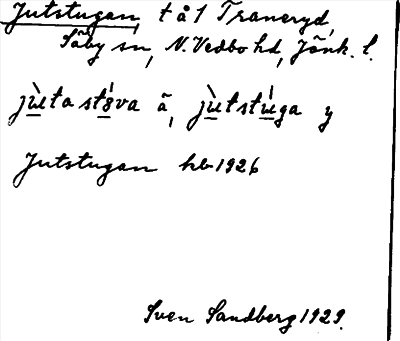 Jutstugan, t å 1 Traneryd,
Säby sn, N. Vedbo hd, Jönk. l.
jùtastó̤va ä, jùtstúga y
Jutstugan hb 1926
Sven Sandberg 1929.